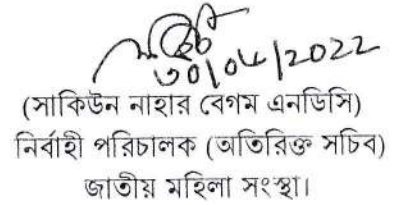 ৩০/০৫/২০২২
(সাকিউন নাহার বেগম এনডিসি)
নির্বাহী পরিচালক (অতিরিক্ত সচিব)
জাতীয় মহিলা সংস্থা।